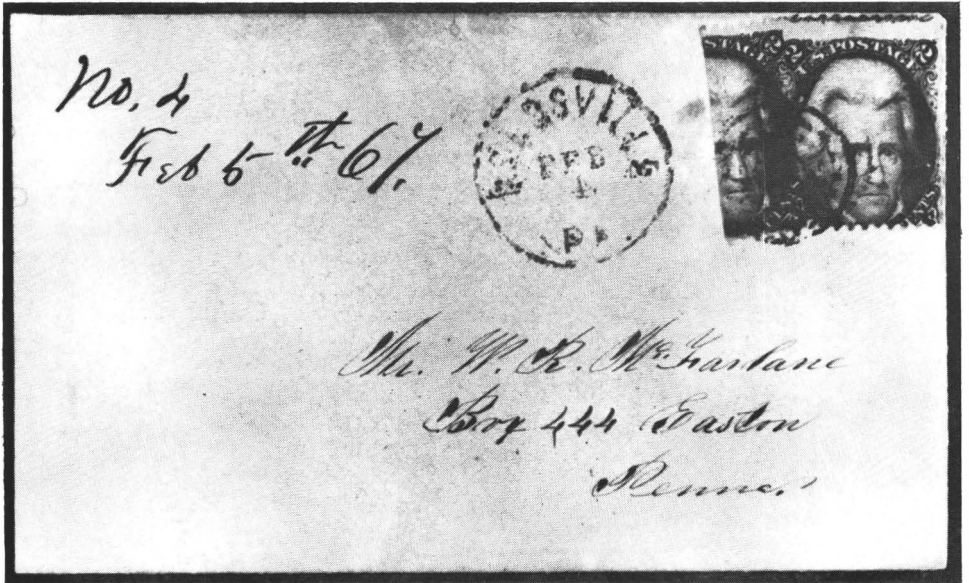 No. 4
Feb 5th 67.
FEB
4
Pa.
POSTAGE
Mr. W. R. McFarlane
Box 444 Easton
Penna.